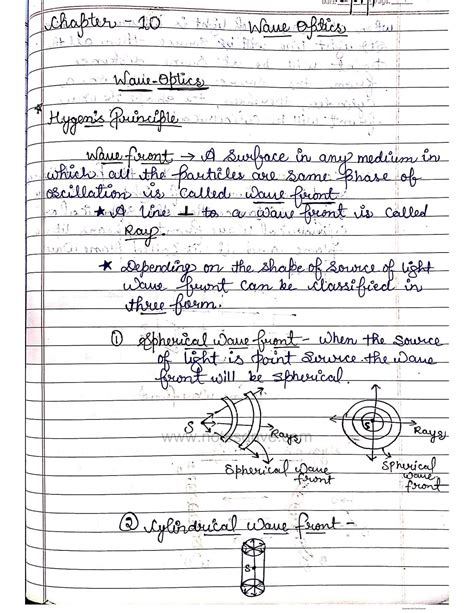 Chapter - 10 Wave Optics
Wave-Optics
* Hygen's Principle
Wave front → A Surface in any medium in
which all the particles are same phase of
oscillation is called wave front.
★ A line ⊥ to a wave front is called
Ray.
★ Depending on the shape of source of light
wave front can be classified in
three form:
① Spherical Wave front - When the source
of light is point source the wave
front will be spherical.
S Rays S Rays
Spherical wave
front
Spherical
wave
front
② Cylindrical wave front -
S